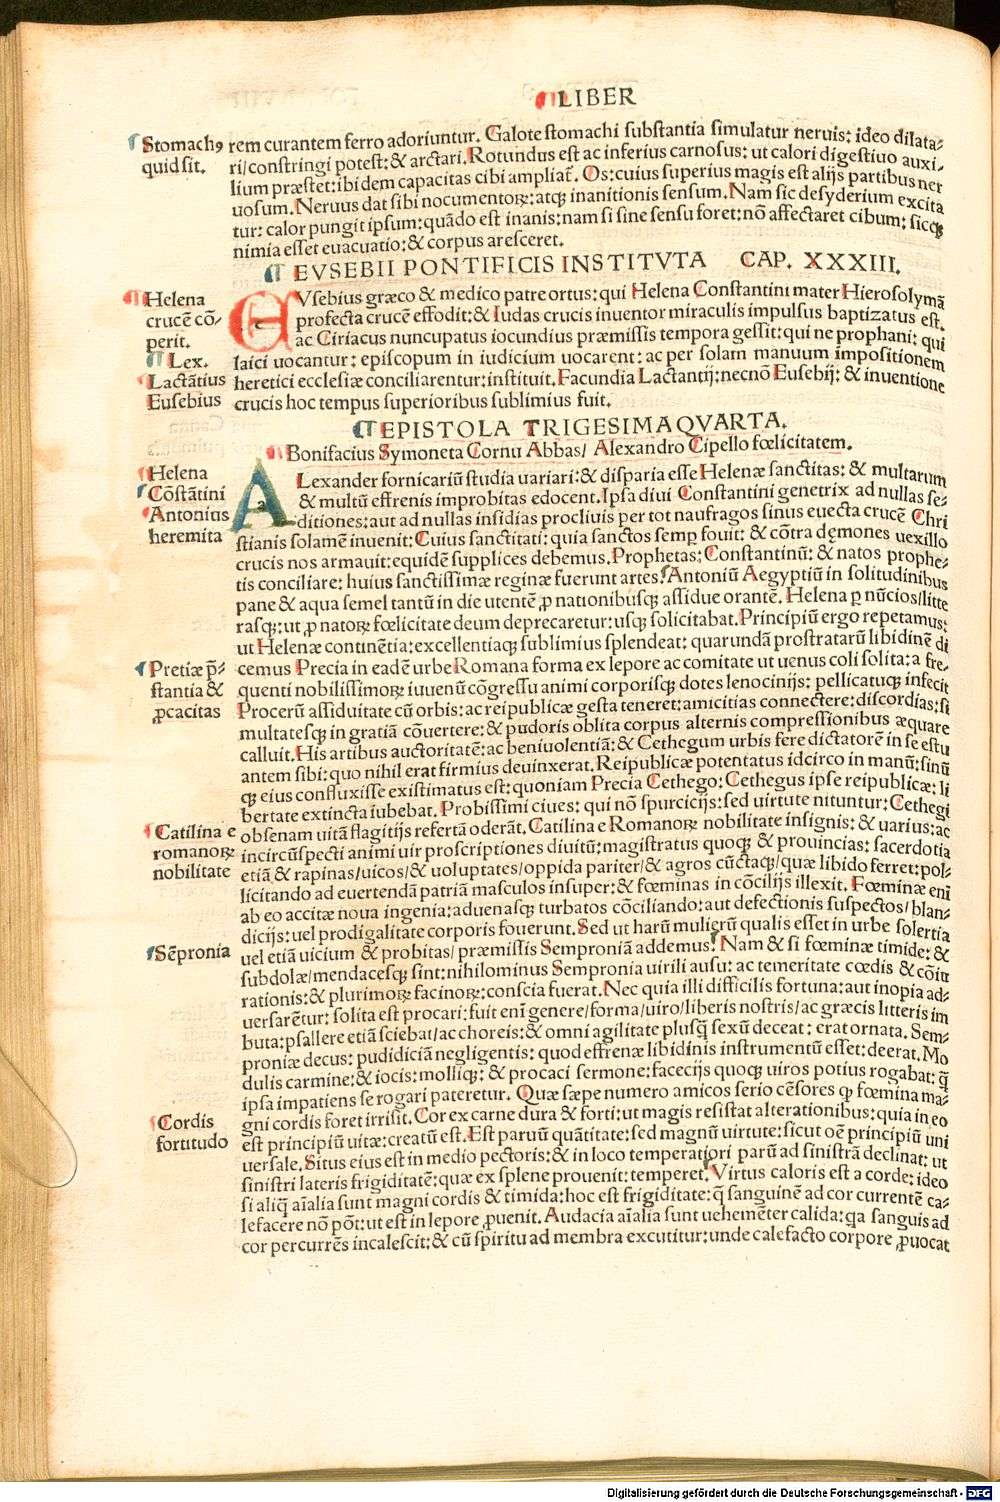 LIBER
Stomachꝰ
quid sit.
rem curantem ferro adoriuntur. Galote stomachi substantia simulatur neruis: ideo dilata⸗
ri/constringi potest: & arctari. Rotundus est ac inferius carnosus: ut calori digestiuo auxi⸗
lium præstet: ibidem capacitas cibi ampliat̃. Os: cuius superius magis est alijs partibus ner
uosum. Neruus dat sibi nocumentoꝝ: atqꝫ inanitionis sensum. Nam sic desyderium excita
tur: calor pungit ipsum: quãdo est inanis: nam si sine sensu foret: nõ affectaret cibum: sicqꝫ
nimia esset euacuatio: & corpus aresceret.
EVSEBII PONTIFICIS INSTITVTA CAP. XXXIII.
Helena
crucẽ cõ⸗
perit.
Lex.
Lactãtius
Eusebius
EVsebius græco & medico patre ortus: qui Helena Constantini mater Hierosolymã
profecta crucẽ effodit: & Iudas crucis inuentor miraculis impulsus baptizatus est.
ac Ciriacus nuncupatus iocundius præmissis tempora gessit: qui ne prophani: qui
laici uocantur: episcopum in iudicium uocarent: ac per solam manuum impositionem
heretici ecclesiæ conciliarentur: instituit. Facundia Lactantij: necnõ Eusebij: & inuentione
crucis hoc tempus superioribus sublimius fuit.
EPISTOLA TRIGESIMAQVARTA.
Bonifacius Symoneta Cornu Abbas/ Alexandro Cipello fœlicitatem.
Helena
Cõstãtini
Antonius
heremita
ALexander fornicariũ studia uariari: & disparia esse Helenæ sanctitas: & multarum
& multũ effrenis improbitas edocent. Ipsa diui Constantini genetrix ad nullas se⸗
ditiones: aut ad nullas insidias procliuis per tot naufragos sinus euecta crucẽ Chri
stianis solamẽ inuenit: Cuius sanctitati: quia sanctos semꝑ fouit: & cõtra dęmones uexillo
crucis nos armauit: equidẽ supplices debemus. Prophetas: Constantinũ: & natos prophe⸗
tis conciliare: huius sanctissimæ reginæ fuerunt artes. Antoniũ Aegyptiũ in solitudinibus
pane & aqua semel tantũ in die utentẽ ꝓ nationibusqꝫ assidue orantẽ. Helena ꝑ nũcios/litte
rasqꝫ: ut ꝓ natoꝝ fœlicitate deum deprecaretur: usqꝫ solicitabat. Principiũ ergo repetamus:
ut Helenæ continẽtia: excellentiaqꝫ sublimius splendeat: quarundã prostratarũ libidinẽ di
Pretiæ p̃⸗
stantia &
ꝓcacitas
cemus Precia in eadẽ urbe Romana forma ex lepore ac comitate ut uenus coli solita: a fre⸗
quenti nobilissimoꝝ iuuenũ cõgressu animi corporisqꝫ dotes lenocinijs: pellicatuqꝫ infecit
Procerũ assiduitate cũ orbis: ac reipublicæ gesta teneret: amicitias connectere: discordias: si
multatesqꝫ in gratiã cõuertere: & pudoris oblita corpus alternis compressionibus æquare
calluit. His artibus auctoritatẽ: ac beniuolentiã: & Cethegum urbis fere dictatorẽ in se estu
antem sibi: quo nihil erat firmius deuinxerat. Reipublicæ potentatus idcirco in manũ: sinũ
qꝫ eius confluxisse existimatus est: quoniam Precia Cethego: Cethegus ipse reipublicæ: li
bertate extincta iubebat. Probissimi ciues: qui nõ spurcicijs: sed uirtute nituntur: Cethegi
Catilina e
romanoꝝ
nobilitate
obsenam uitã flagitijs refertã oderãt. Catilina e Romanoꝝ nobilitate insignis: & uarius: ac
incircũspecti animi uir proscriptiones diuitũ: magistratus quoqꝫ & prouincias: sacerdotia
etiã & rapinas/uicos/& uoluptates/oppida pariter/& agros cũctaqꝫ/quæ libido ferret: pol⸗
licitando ad euertendã patriã masculos insuper: & fœminas in cõcilijs illexit. Fœminæ enĩ
ab eo accitæ noua ingenia: aduenasqꝫ turbatos cõciliando: aut defectionis suspectos/blan⸗
dicijs: uel prodigalitate corporis fouerunt. Sed ut harũ mulierũ qualis esset in urbe solertia
Sẽpronia
uel etiã uicium & probitas/ præmissis Semproniã addemus. Nam & si fœminæ timide: &
subdolæ/mendacesqꝫ sint: nihilominus Sempronia uirili ausu: ac temeritate cœdis & cõiu
rationis: & plurimoꝝ facinoꝝ: conscia fuerat. Nec quia illi difficilis fortuna: aut inopia ad⸗
uersarẽtur: solita est procari: fuit enĩ genere/forma/uiro/liberis nostris/ac græcis litteris im
buta: psallere etiã sciebat/ac choreis: & omni agilitate plusq̃ sexũ deceat: erat ornata. Sem⸗
proniæ decus: pudidiciã negligentis: quod effrenæ libidinis instrumentũ esset: deerat. Mo
dulis carmine: & iocis: molliqꝫ: & procaci sermone: facecijs quoqꝫ uiros potius rogabat: q̃
ipsa impatiens se rogari pateretur. Quæ sæpe numero amicos serio cẽsores ꝙ fœmina ma⸗
Cordis
fortitudo
gni cordis foret irrisit. Cor ex carne dura & forti: ut magis resistat alterationibus: quia in eo
est principiũ uitæ: creatũ est. Est paruũ quãtitate: sed magnũ uirtute: sicut oẽ principiũ uni
uersale. Situs eius est in medio pectoris: & in loco temperatiori parũ ad sinistrã declinat: ut
sinistri lateris frigiditatẽ: quæ ex splene prouenit: temperet. Virtus caloris est a corde: ideo
si aliq̃ aĩalia sunt magni cordis & timida: hoc est frigiditate: q̃ sanguinẽ ad cor currentẽ ca⸗
lefacere nõ põt: ut est in lepore ꝓuenit. Audacia aĩalia sunt uehemẽter calida: qa sanguis ad
cor percurrẽs incalescit: & cũ spiritu ad membra excutitur: unde calefacto corpore ꝓuocat
Digitalisierung gefördert durch die Deutsche Forschungsgemeinschaft - DFG